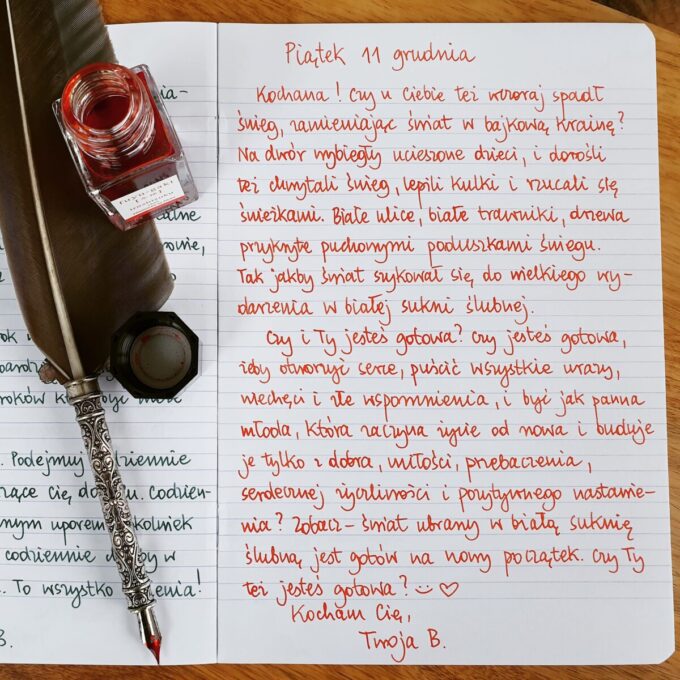 fuyu-gaki
. Podejmuj codziennie
Cię Codzien-
uporem
codziennie w
. To wszystko
B.
Piątek 11 grudnia
Kochana! Czy u Ciebie też wczoraj spadł
śnieg, zamieniając świat w bajkową krainę?
Na dwór wybiegły ucieszone dzieci, i dorośli
też chwytali śnieg, lepili kulki i rzucali się
śnieżkami. Białe ulice, białe trawniki, drzewa
przykryte puchowymi poduszkami śniegu.
Tak jakby świat szykował się do wielkiego wy-
darzenia w białej sukni ślubnej.
Czy i Ty jesteś gotowa? Czy jesteś gotowa,
żeby otworzyć serce, puścić wszystkie urazy,
niechęci i złe wspomnienia, i być jak panna
młoda, która zaczyna życie od nowa i buduje
je tylko z dobra, miłości, przebaczenia,
serdecznej życzliwości i pozytywnego nastawie-
nia? Zobacz - świat ubrany w białą suknię
ślubną jest gotów na nowy początek. Czy Ty
też jesteś gotowa?
Kocham Cię,
Twoja B.